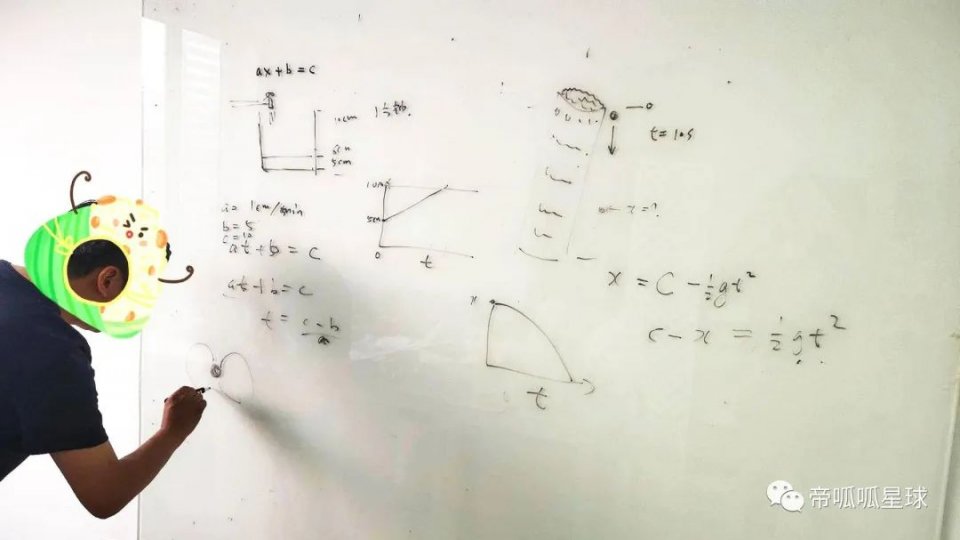 ax + b = c
10cm
5cm
a = 1cm/min
b = 5
c = 10
at + b = c
at + b = c
t = c - b / a
10cm
5cm
0
t
0
t = 10s
x = ?
x
t
x = C - 1/2 gt²
c - x = 1/2 gt²
帝呱呱星球